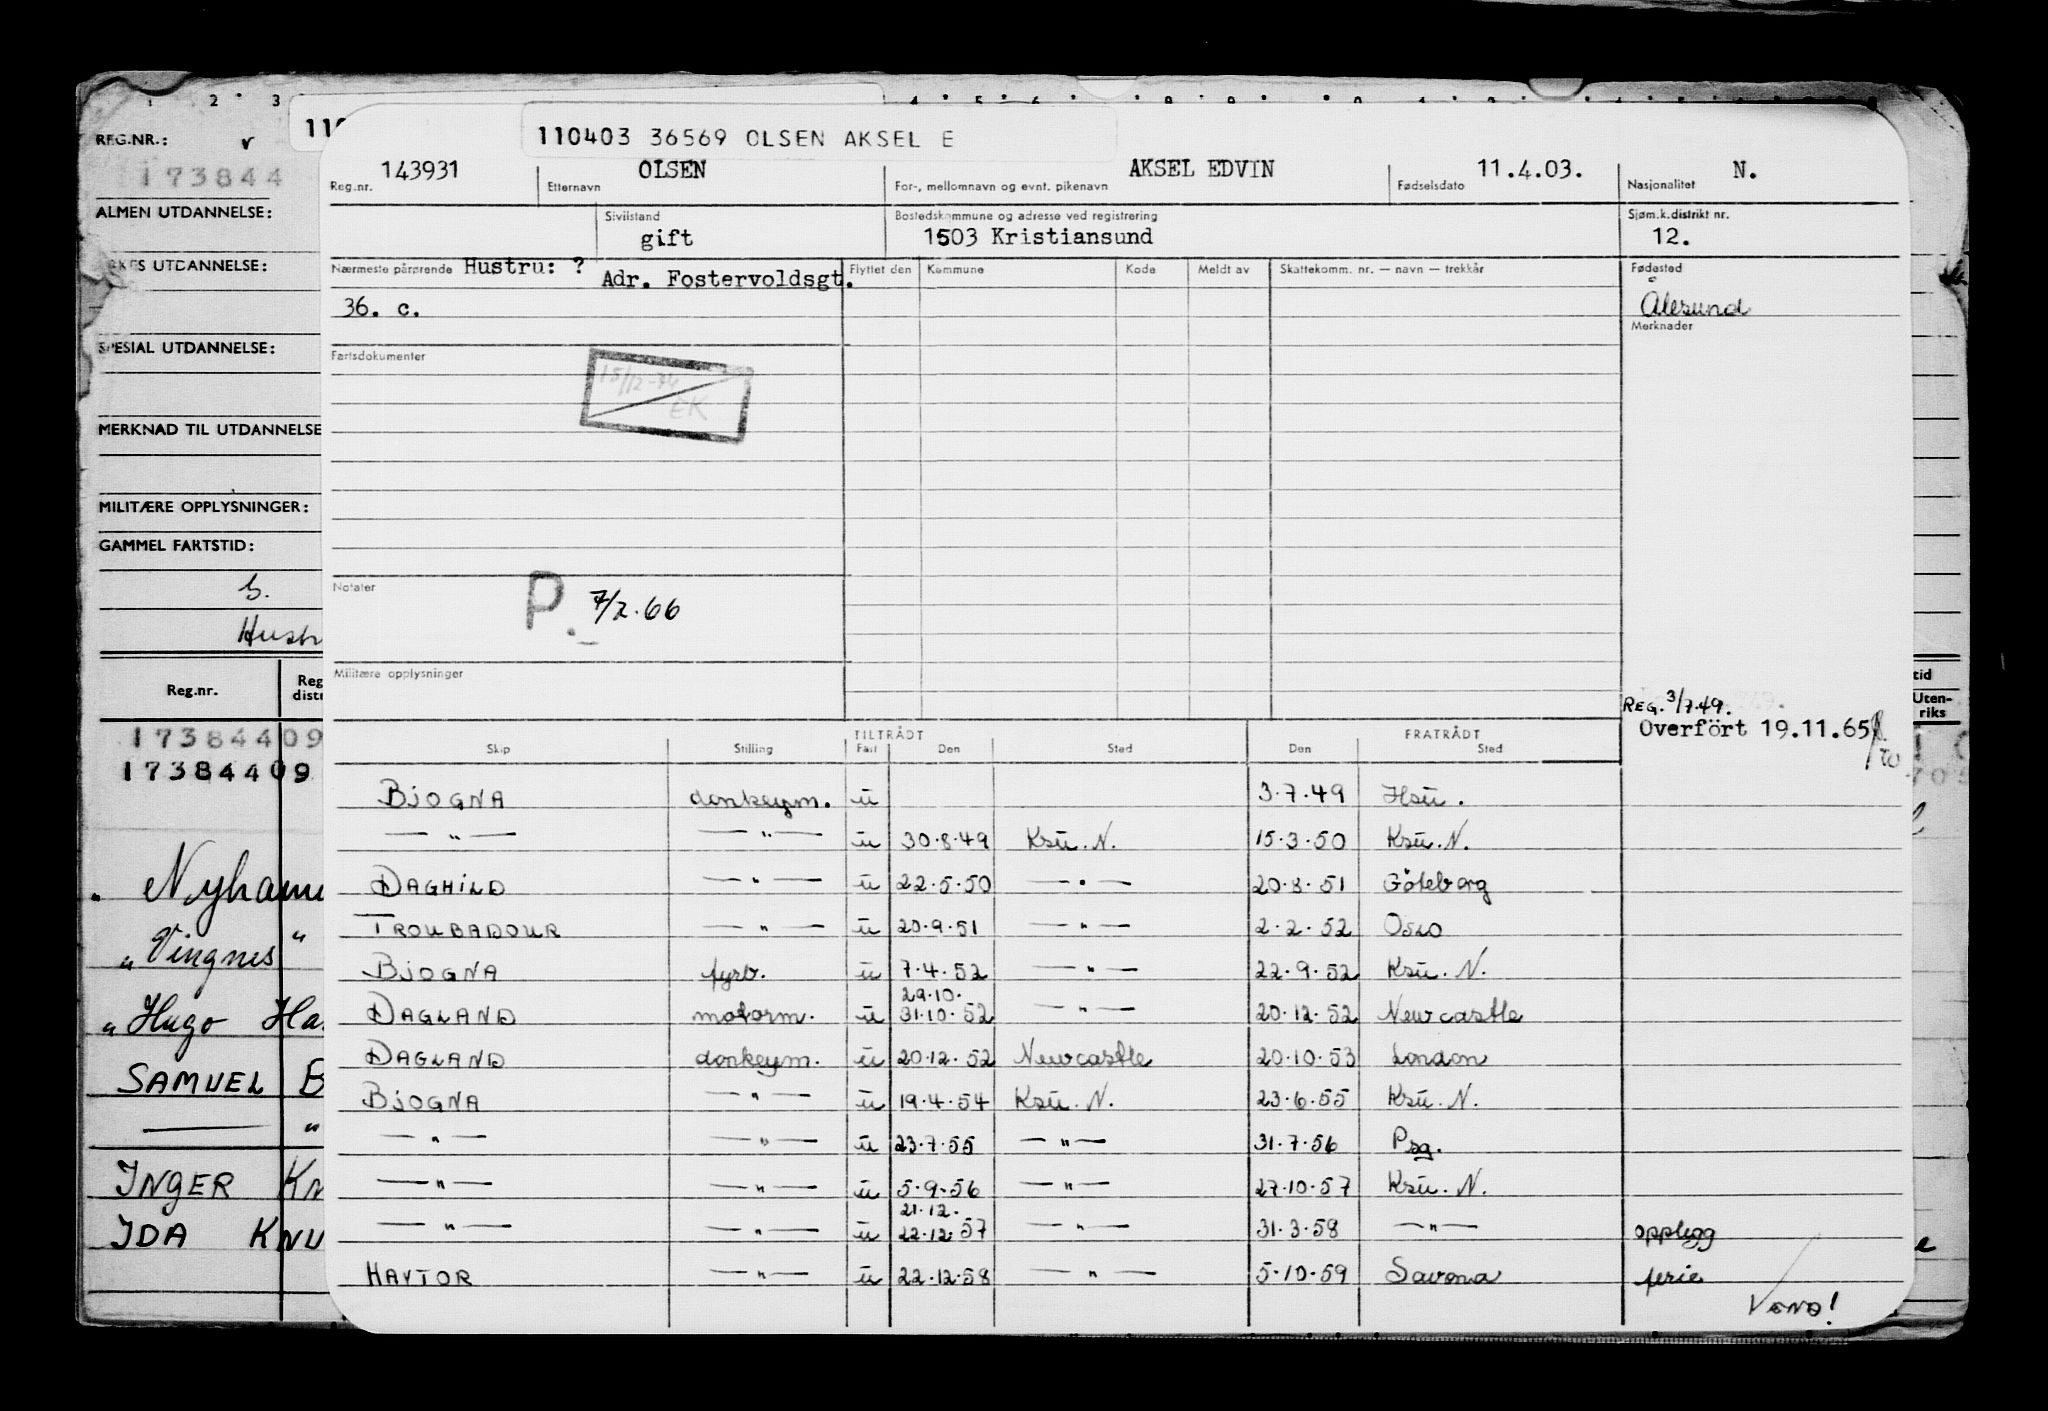 110403 36569 OLSEN AKSEL E
143931 OLSEN AKSEL EDVIN 11.4.03. N.
Reg.nr. Etternavn For-, mellomnavn og evnt. pikenavn Fødselsdato Nasjonalitet
Sivilstand Bostedskommune og adresse ved registrering Sjøm.k.distrikt nr.
gift 1503 Kristiansund 12.
Nærmeste pårørende Hustru: ? Flyttet den Kommune Kode Meldt av Skattekomm. nr. — navn — trekkår Fødested
Adr. Fostervoldsgt.
36. c. Ålesund
Merknader
Fartsdokumenter
15/12-74
EK
Notater
P. 7/2.66
Militære opplysninger
REG. 3/7.49.
Overført 19.11.65
TILTRÅDT FRATRÅDT
Skip Stilling Fart Den Sted Den Sted
BJOGNA donkeym. u 3.7.49 Hsu.
— " — — " — u 30.8.49 Ksu. N. 15.3.50 Ksu. N.
DAGHILD — " — u 22.5.50 — " — 20.8.51 Göteborg
TROUBADOUR — " — u 20.9.51 — " — 2.2.52 OSLO
BJOGNA fyrb. u 7.4.52 — " — 22.9.52 Ksu. N.
29.10.
DAGLAND motorm. u 31.10.52 — " — 20.12.52 Newcastle
DAGLAND donkeym. u 20.12.52 Newcastle 20.10.53 London
BJOGNA — " — u 19.4.54 Ksu. N. 23.6.55 Ksu. N.
— " — — " — u 23.7.55 — " — 31.7.56 Psg.
— " — — " — u 5.9.56 — " — 27.10.57 Ksu. N.
21.12.
— " — — " — u 22.12.57 — " — 31.3.58 — " — opplegg
HAVTOR — " — u 22.12.58 — " — 5.10.59 Savona ferie
VEND!
REG.NR.:
173844
ALMEN UTDANNELSE:
UTDANNELSE:
SPESIAL UTDANNELSE:
MERKNAD TIL UTDANNELSE
MILITÆRE OPPLYSNINGER:
GAMMEL FARTSTID:
Reg.nr.
17384409
17384409
" Vingnes "
" Hugo
SAMUEL
— "
INGER
IDA
tid
Uten-
riks